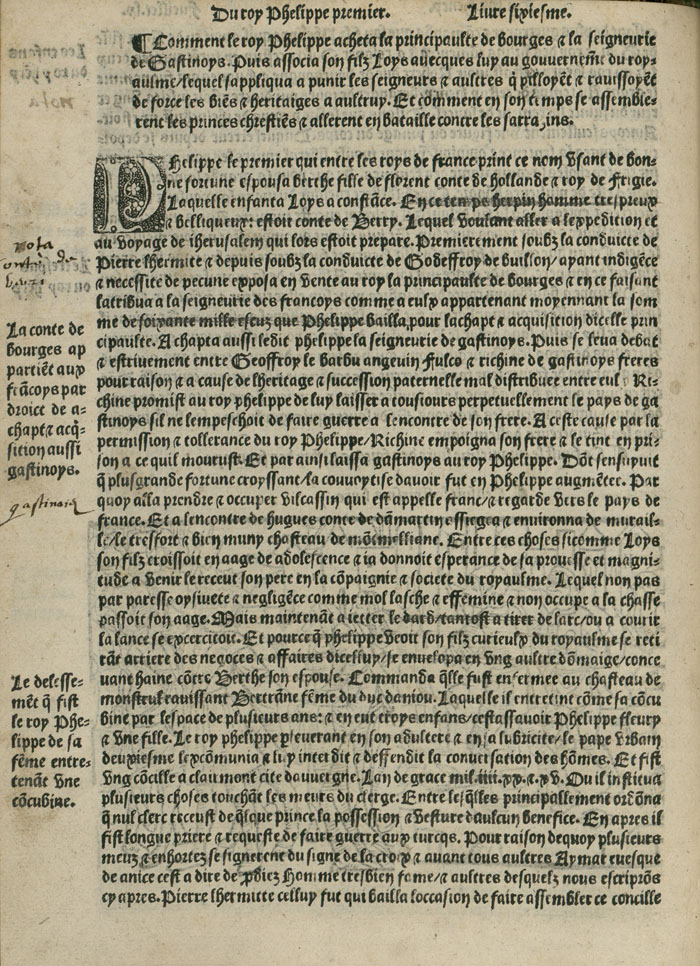 Du roy Phelippe premier. Liure sixiesme.
¶ Comment le roy Phelippe acheta la principaulte de bourges ⁊ la seigneurie
de Gastinoys. Puis associa son filz Loys auecques luy au gouuernem̃t du roy-
aulme/lequel sappliqua a punir les seigneurs ⁊ aultres q̃ pilloyẽt ⁊ rauissoyẽt
de force les biẽs ⁊ heritaiges a aultruy. Et cõment en son temps se assemble-
rent les princes chrestiẽs ⁊ allerent en bataille contre les sarrazins.
PHelippe le premier qui entre les roys de france print ce nom vsant de bon-
ne fortune espousa berthe fille de florent conte de hollande ⁊ roy de Frigie.
Laquelle enfanta Loys a constãce. En ce temps herpin homme trespreux
⁊ belliqueux: estoit conte de Berry. Lequel voulant aller a lexpedition et
au voyage de iherusalem qui lors estoit prepare. Premierement soubz la conduicte de
Pierre lhermite ⁊ depuis soubz la conduicte de Godeffroy de buillon/ayant indigẽce
⁊ necessite de pecune exposa en vente au roy la principaulte de bourges ⁊ en ce faisant
latribua a la seigneurie des francoys comme a eulx appartenant moyennant la som
me de soixante mille escuz que Phelippe bailla/pour lachapt ⁊ acquisition dicelle prin
cipaulte. Achapta aussi ledit phelippe la seigneurie de gastinoys. Puis se leua debat
⁊ estriuement entre Geoffroy le barbu angeuin Fulco ⁊ richine de gastinoys freres
pour raison ⁊ a cause de lheritage ⁊ succession paternelle mal distribuee entre eulx Ri-
chine promist au roy phelippe de luy laisser a tousiours perpetuellement le pays de ga
stinoys sil ne lempeschoit de faire guerre a lencontre de son frere. A ceste cause par la
permission ⁊ tollerance du roy Phelippe/Richine empoigna son frere ⁊ le tint en pri-
son a ce quil mourust. Et par ainsi laissa gastinoys au roy Phelippe. Dõt sensuyuit
q̃ plusgrande fortune croyssant/la couuoytise dauoir fut en Phelippe augmẽtee. Par
quoy alla prendre ⁊ occuper vilcassin qui est appelle franc/⁊ regarde vers le pays de
france. Et a lencontre de hugues conte de dãmartin essiegea ⁊ enuironna de murail-
le/le tresfort ⁊ bien muny chasteau de mõtmelliane. Entre ces choses sicomme Loys
son filz croissoit en aage de adolescence ⁊ ia donnoit esperance de sa prouesse et magni-
tude a venir le receut son pere en la cõpaignie ⁊ societe du royaulme. Lequel non pas
par paresse oysiuete ⁊ negligẽce comme mol lasche ⁊ effemine ⁊ non occupe a la chasse
passoit son aage. Mais maintenãt a ietter le dard/tantost a tirer de larc/ou a courir
la lance se excercitoit. Et pource q̃ phelippe veoit son filz curieulx du royaulme se reti
rãt arriere des negoces ⁊ affaires dicelluy/se enuelopa en vng aultre dõmaige/conce
uant haine cõtre Berthe son espouse. Commanda q̃lle fust enfermee au chasteau de
monstrul rauissant Bertrãne fẽme du duc daniou. Laquelle il entretint cõme sa cõcu
bine par lespace de plusieurs ans: ⁊ en eut troys enfans/cestassauoir Phelippe fleury
⁊ vne fille. Le roy phelippe p̱seuerant en son adultere ⁊ en sa lubricite/le pape vrbain
deuxiesme lexcõmunia ⁊ luy interdit ⁊ deffendit la conuersation des hõmes. Et fist
vng cõcille a clau mont cite dauuergne. Lan de grace mil.iiii.xx.⁊.xv. Ou il institua
plusieurs choses touchãt les meurs du clerge. Entre lesq̃lles principallement ordõna
q̃ nul clerc receust de q̃lque prince la possession ⁊ vesture daulcun benefice. En apres il
fist longue priere ⁊ requeste de faire guerre aux turcqs. Pour raison dequoy plusieurs
meuz ⁊ enhortez se signerent du signe de la croix ⁊ auant tous aultres Aymar euesque
de anice cest a dire de p̱diez Homme tresbien fame/⁊ aultres desquelz nous escriprõs
cy apres. Pierre lhermitte celluy fut qui bailla loccasion de faire assembler ce concille
nota
La conte de
bourges ap
partiẽt aux
frãcoys par
droict de a-
chapt⁊ acq̃-
sition aussi
gastinoys.
gastinois
Le delesse-
mẽt q̃ fist
le roy Phe-
lippe de sa
fẽme entre-
tenãt vne
cõcubine.